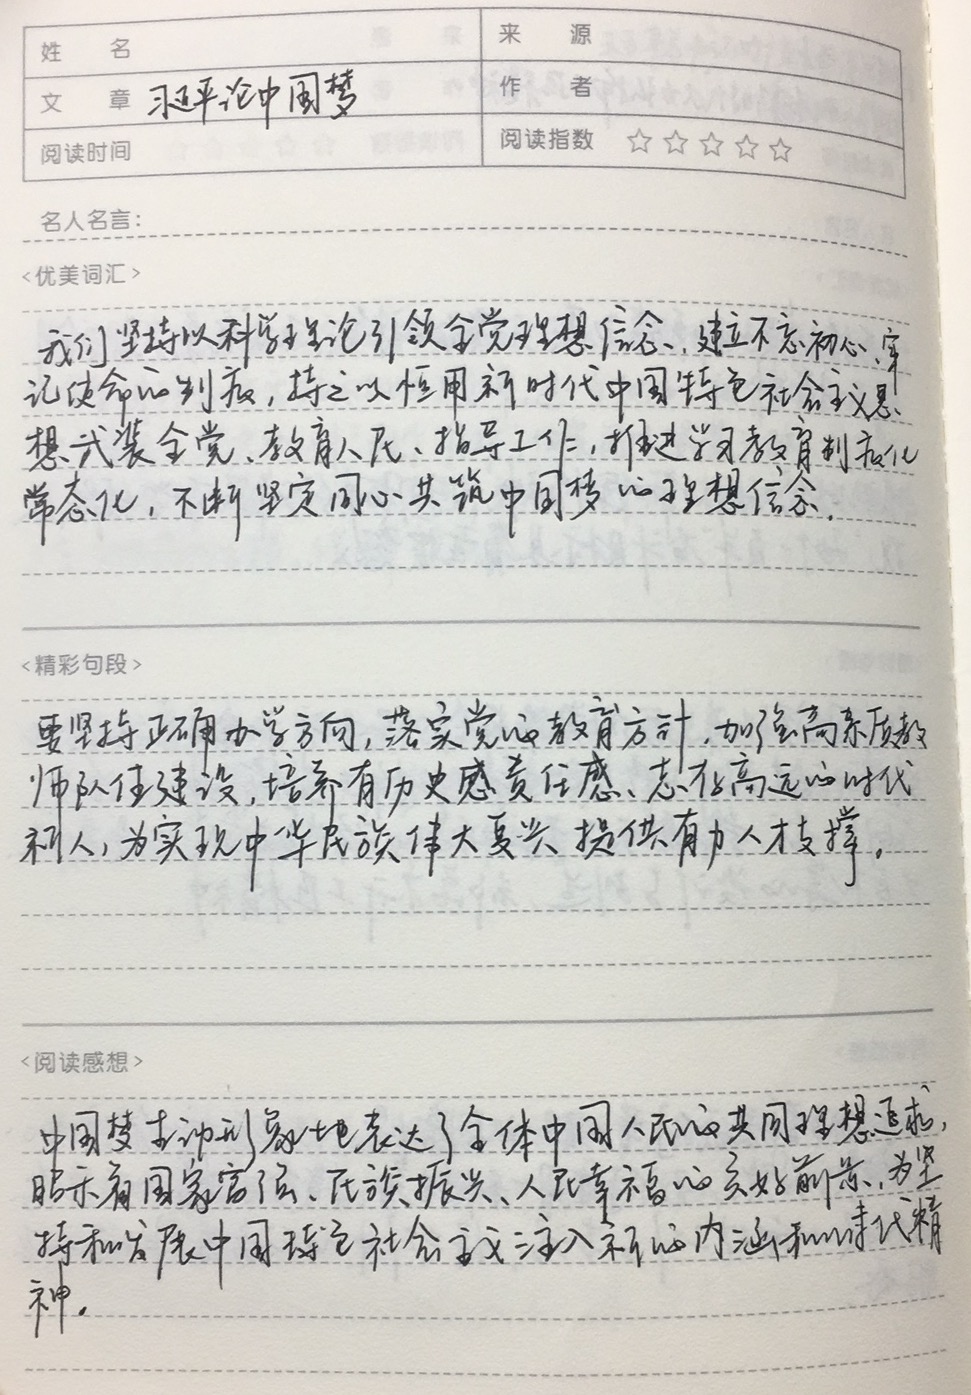 姓 名 来 源
文 章 习近平论中国梦 作 者
阅读时间 阅读指数 ☆☆☆☆☆
名人名言：
<优美词汇>
我们坚持以科学理论引领全党理想信念、建立不忘初心、牢
记使命的制度，持之以恒用新时代中国特色社会主义思
想武装全党、教育人民、指导工作，推进学习教育制度化
常态化，不断坚定同心共筑中国梦的理想信念。
<精彩句段>
要坚持正确办学方向，落实党的教育方针，加强高素质教
师队伍建设，培养有历史感责任感、志存高远的时代
新人，为实现中华民族伟大复兴提供有力人才支撑。
<阅读感想>
中国梦生动形象地表达了全体中国人民的共同理想追求，
昭示着国家富强、民族振兴、人民幸福的美好前景，为坚
持和发展中国特色社会主义注入新的内涵和时代精
神。